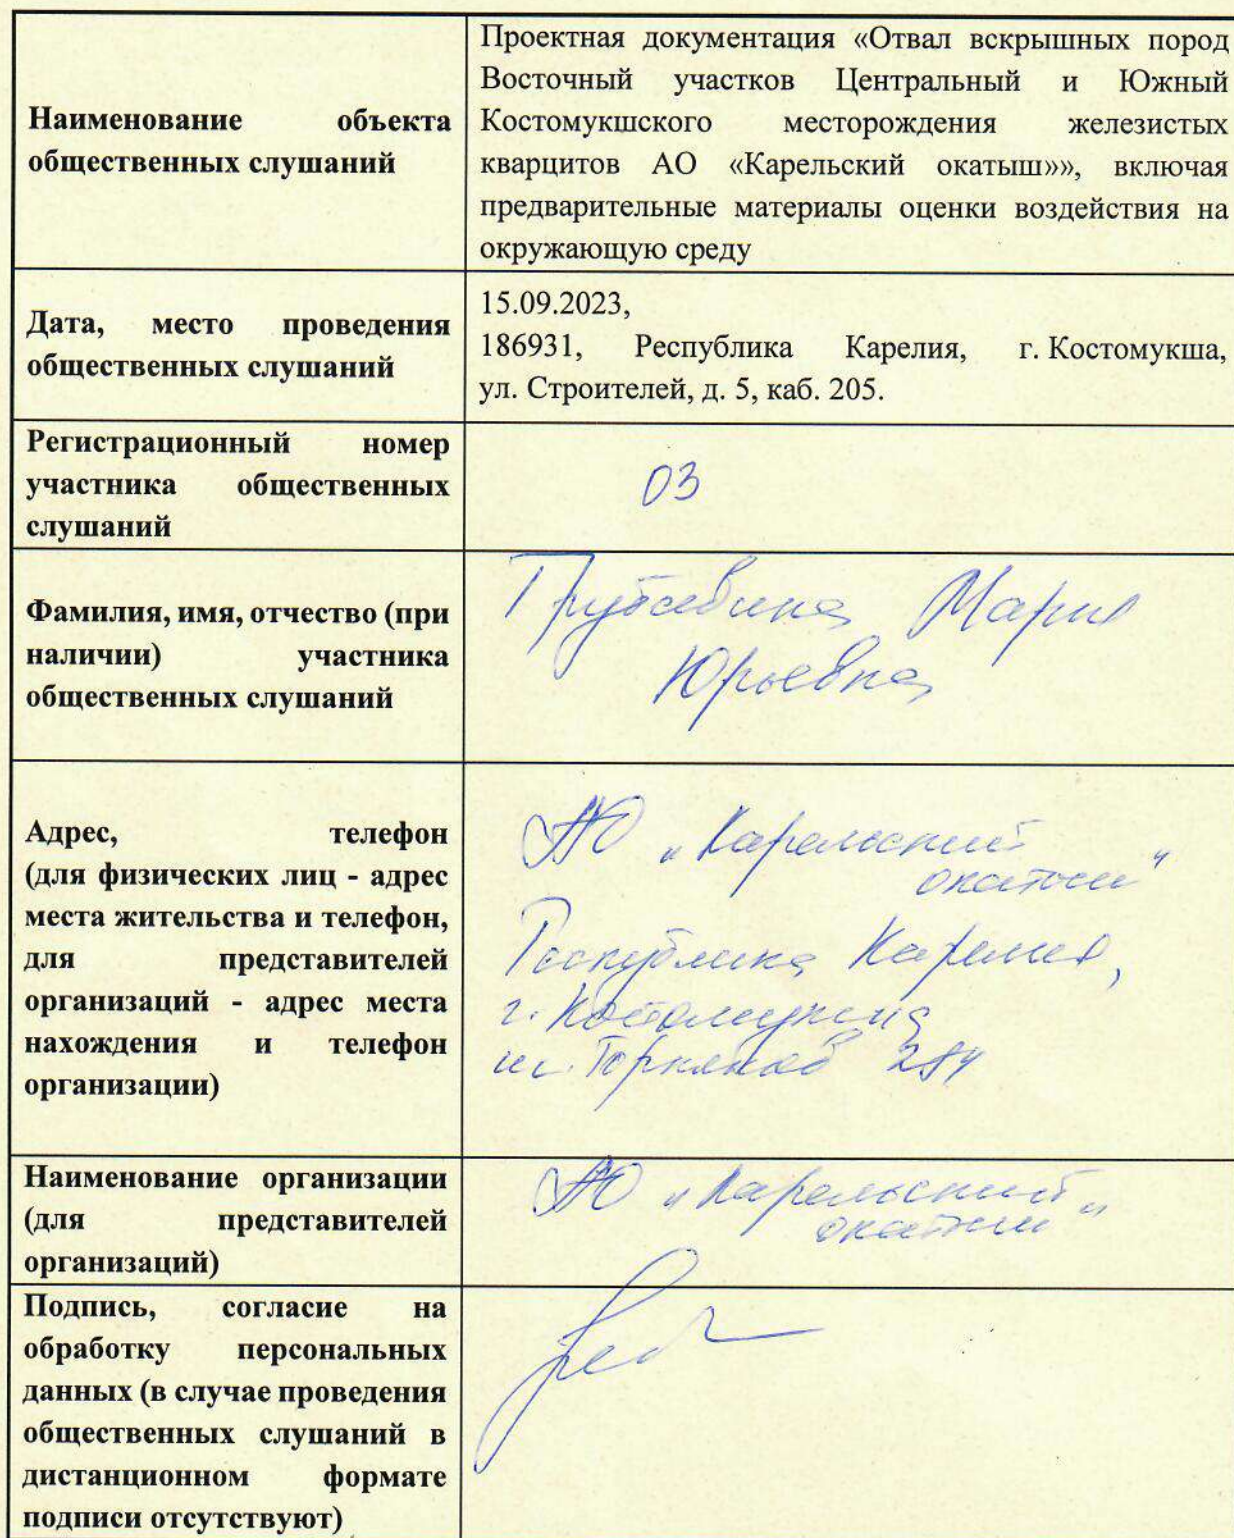 Наименование объекта
общественных слушаний
Проектная документация «Отвал вскрышных пород
Восточный участков Центральный и Южный
Костомукшского месторождения железистых
кварцитов АО «Карельский окатыш»», включая
предварительные материалы оценки воздействия на
окружающую среду
Дата, место проведения
общественных слушаний
15.09.2023,
186931, Республика Карелия, г. Костомукша,
ул. Строителей, д. 5, каб. 205.
Регистрационный номер
участника общественных
слушаний
03
Фамилия, имя, отчество (при
наличии) участника
общественных слушаний
Мария
Юрьевна
Адрес, телефон
(для физических лиц - адрес
места жительства и телефон,
для представителей
организаций - адрес места
нахождения и телефон
организации)
АО "Карельский
окатыш"
Республика Карелия,
г. Костомукша
ш. Горняков 284
Наименование организации
(для представителей
организаций)
АО "Карельский
окатыш"
Подпись, согласие на
обработку персональных
данных (в случае проведения
общественных слушаний в
дистанционном формате
подписи отсутствуют)